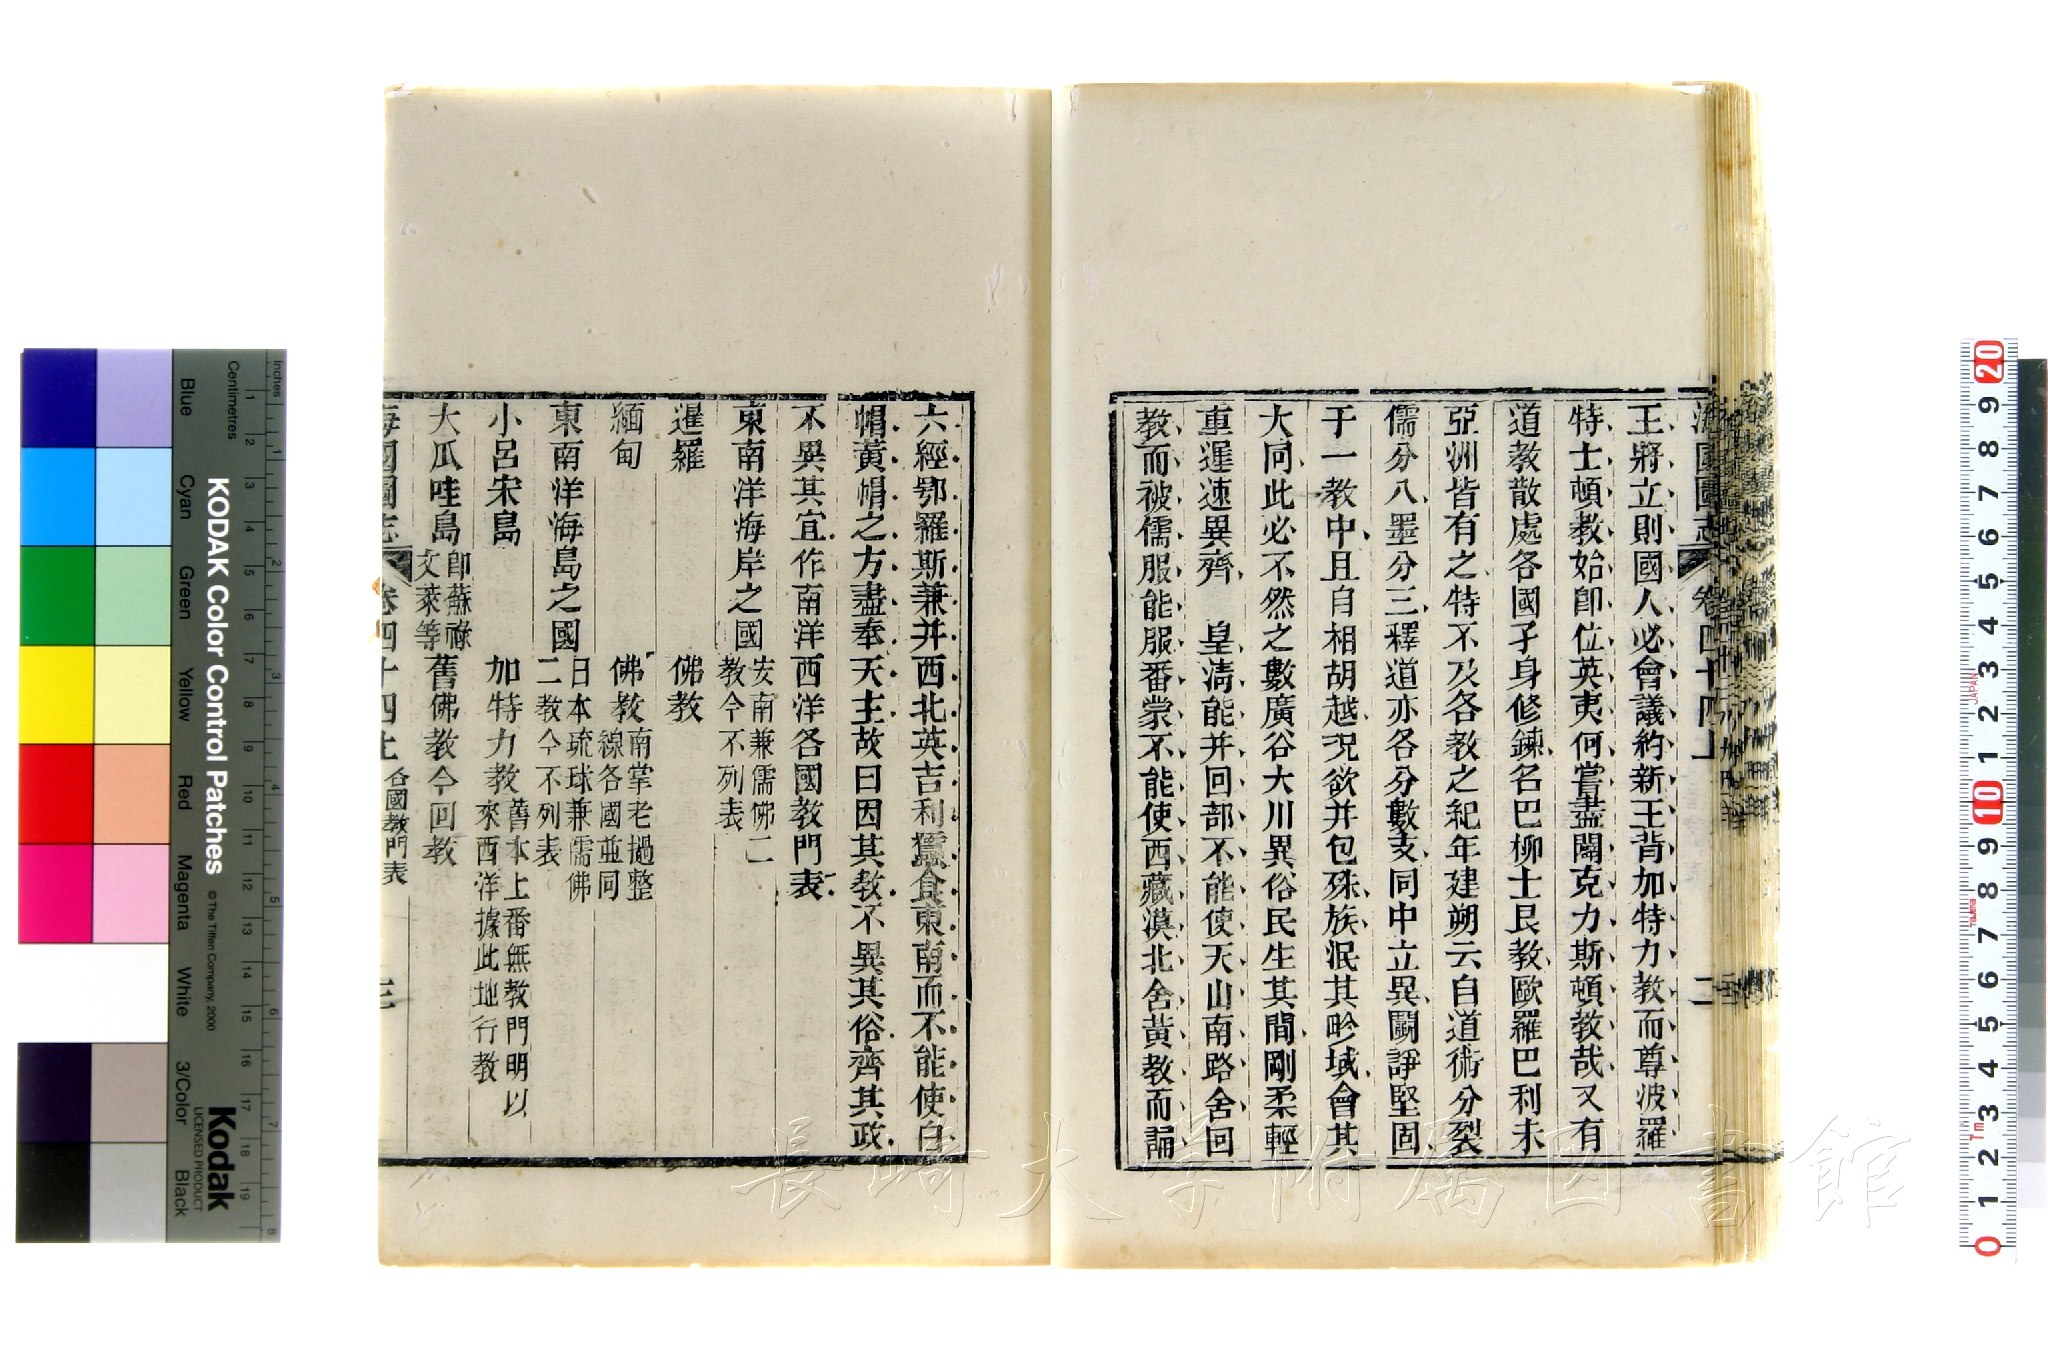 海國圖志 卷四十四上 二
王將立則國人必會議約新王背加特力教而尊波羅
特士頓教始卽位英夷何嘗盡闢克力斯頓教哉又有
道教散處各國孑身修鍊名巴柳士艮教歐羅巴利未
亞洲皆有之特不及各教之紀年建朔云自道術分裂
儒分八墨分三釋道亦各分數支同中立異鬬諍堅固
于一教中且自相胡越況欲并包殊族泯其畛域會其
大同此必不然之數廣谷大川異俗民生其間剛柔輕
重遲速異齊 皇清能并回部不能使天山南路舍回
教而被儒服能服番蒙不能使西藏漠北舍黃教而誦
六經鄂羅斯兼并西北英吉利蠶食東南而不能使白
帽黃帽之方盡奉天主故曰因其教不異其俗齊其政
不異其宜作南洋西洋各國教門表
東南洋海岸之國 安南兼儒佛二
教今不列表
暹羅 佛教
緬甸 佛教 南掌老撾整
線各國並同
東南洋海島之國 日本琉球兼儒佛
二教今不列表
小呂宋島 加特力教 善本上番無教門明以
來西洋據此地行教
大瓜哇島 卽蘇祿
文萊等 舊佛教今回教
海國圖志 卷四十四上 各國教門表 三
KODAK Color Control Patches
© The Tiffen Company, 2000
Kodak
LICENSED PRODUCT
Inches
Centimetres
Blue
Cyan
Green
Yellow
Red
Magenta
White
3/Color
Black
JAPAN
長崎大学附属図書館